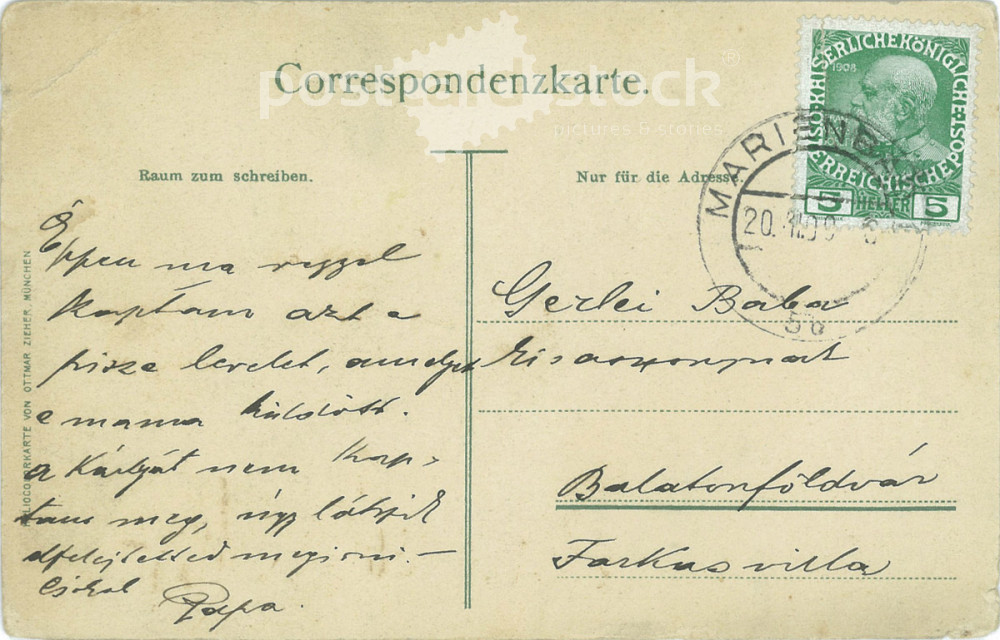 postcardstock®
pictures & stories
Correspondenzkarte.
Raum zum schreiben.
Nur für die Adresse.
KAISERLICHE KÖNIGLICHE
ÖSTERREICHISCHE POST
1908
5 HELLER 5
MARIENBA
20. 09
5a
HELIOCOLORKARTE VON OTTMAR ZIEHER, MÜNCHEN
Éppen ma reggel
kaptam azt a
pisze levelet, amelyet
a mama küldött.
a kártyát nem kap-
tam meg, úgy látszik
elfelejtetted megirni —
Csókol
Papa.
Gerlei Baba
kisasszonynak
Balatonföldvár
Farkas villa